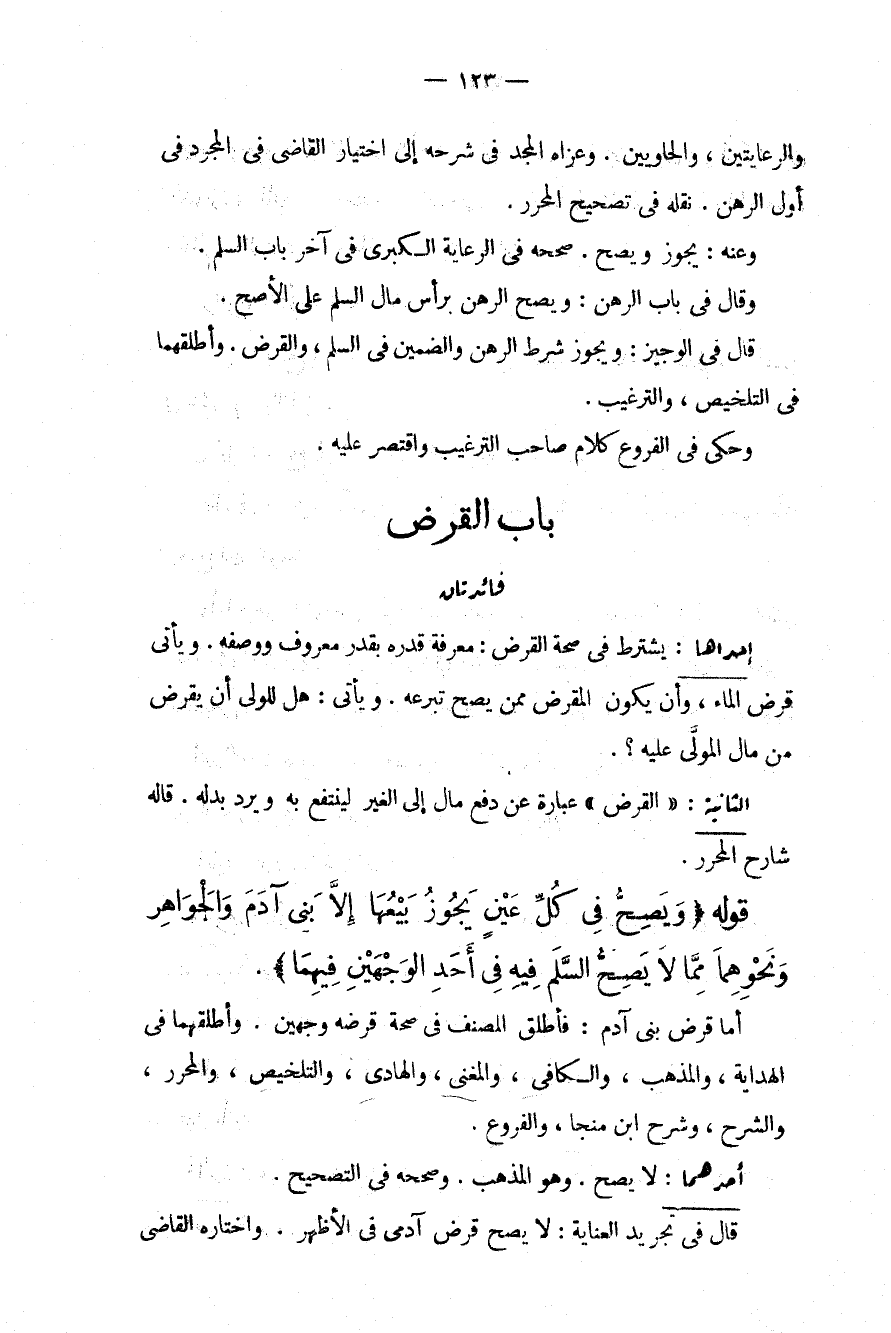 — ١٢٣ —
والرعايتين ، والحاويين . وعزاه المجد فى شرحه إلى اختيار القاضى فى المجرد فى
أول الرهن . نقله فى تصحيح المحرر .
وعنه : يجوز ويصح . صححه فى الرعاية الكبرى فى آخر باب السلم .
وقال فى باب الرهن : ويصح الرهن برأس مال السلم على الأصح .
قال فى الوجيز : ويجوز شرط الرهن والضمين فى السلم ، والقرض . وأطلقهما
فى التلخيص ، والترغيب .
وحكى فى الفروع كلام صاحب الترغيب واقتصر عليه .
باب القرض
فائدتان
إحداها : يشترط فى صحة القرض : معرفة قدره بقدر معروف ووصفه . ويأتى
قرض الماء ، وأن يكون المقرض ممن يصح تبرعه . ويأتى : هل للولى أن يقرض
من مال المولَّى عليه ؟ .
الثانية : « القرض » عبارة عن دفع مال إلى الغير لينتفع به ويرد بدله . قاله
شارح المحرر .
قوله ﴿ وَيَصِحُّ فِى كُلِّ عَيْنٍ يَجُوزُ بَيْعُهَا إِلاَّ بَنِى آدَمَ وَالْجَوَاهِرِ
وَنَحْوِهِمَا مِمَّا لاَ يَصِحُّ السَّلَم فِيهِ فِى أَحَدِ الوَجْهَيْنِ فِيهِمَا ﴾ .
أما قرض بنى آدم : فأطلق المصنف فى صحة قرضه وجهين . وأطلقهما فى
الهداية ، والمذهب ، والكافى ، والمغنى ، والهادى ، والتلخيص ، والمحرر ،
والشرح ، وشرح ابن منجا ، والفروع .
أحدهما : لا يصح . وهو المذهب . وصححه فى التصحيح .
قال فى تجريد العناية : لا يصح قرض آدمى فى الأظهر . واختاره القاضى